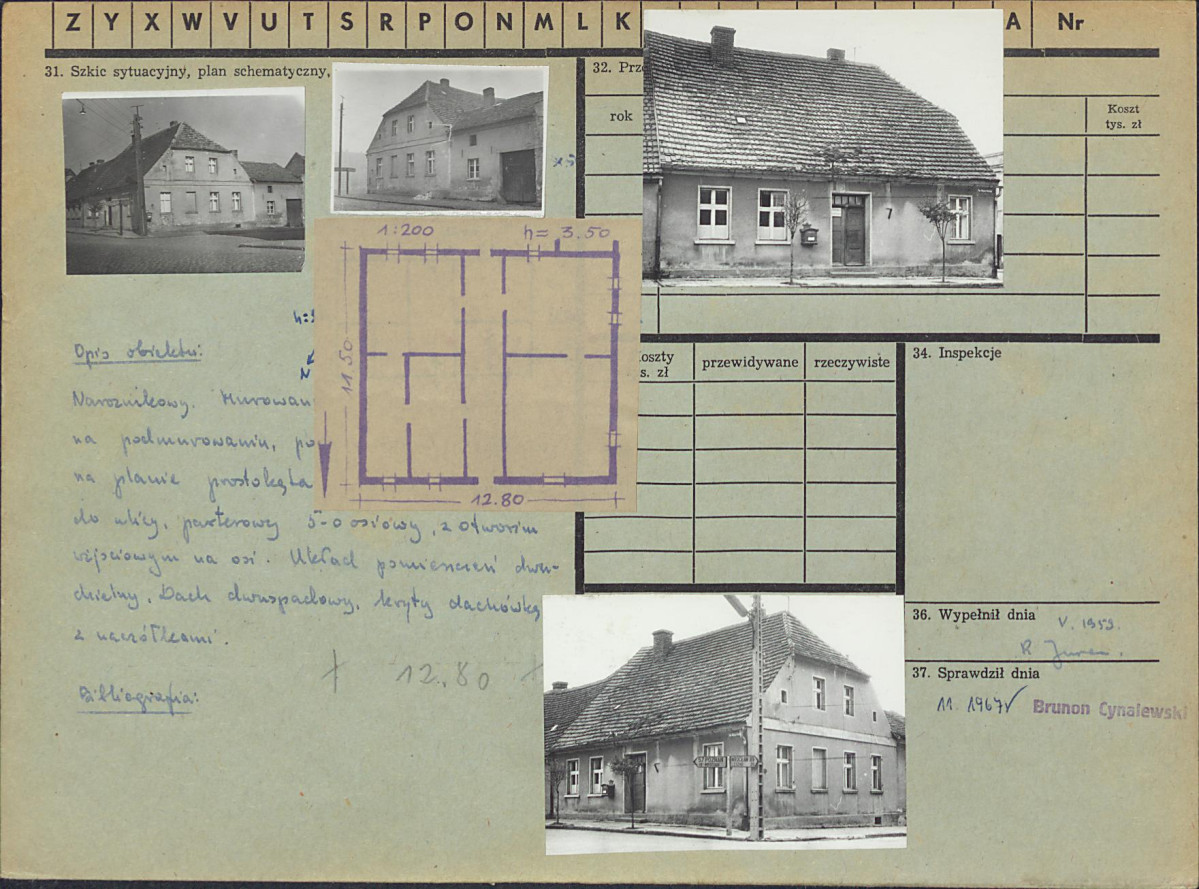 Z Y X W V U T S R P O N M L K A Nr
31. Szkic sytuacyjny, plan schematyczny,
32. Prze
rok
Koszt
tys. zł
1:200
h= 3.50
11.50
12.80
7
Opis obiektu:
Narożnikowy. Murowan
na podmurowaniu, po
na planie prostokąta
do ulicy, parterowy 5-o osiowy, z otworem
wejściowym na osi. Układ pomieszczeń dwu-
dzielny. Dach dwuspadowy, kryty dachówką
z naczółkami.
12.80
Bibliografia:
oszty
s. zł
przewidywane
rzeczywiste
34. Inspekcje
36. Wypełnił dnia
V. 1959.
37. Sprawdził dnia
11. 1967
Brunon Cynalewski